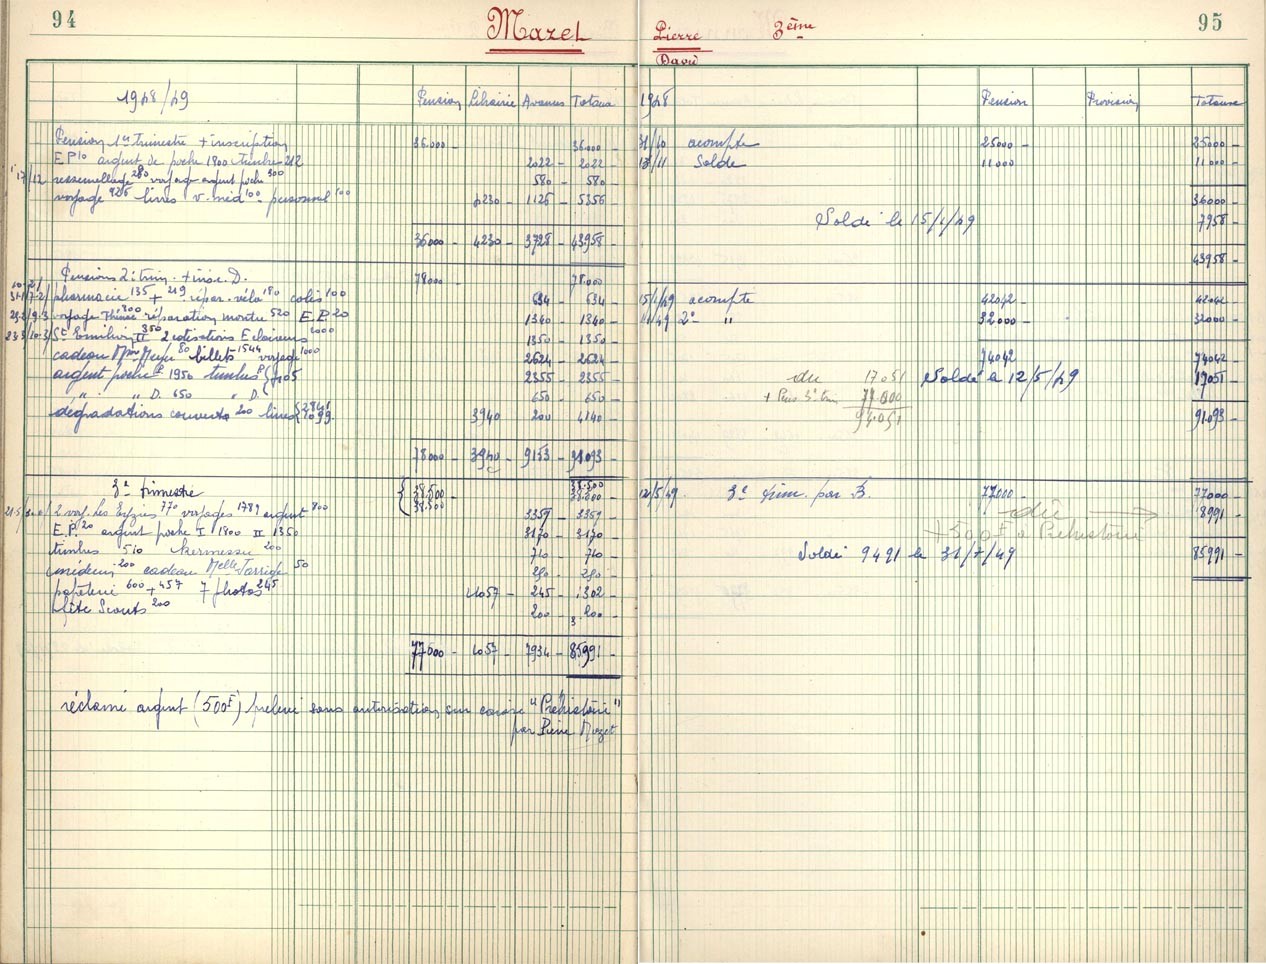 94
Mazel
1948/49
Pension Librairie Avances Totaux
Pension 1er trimestre + inscription 36.000 - 36.000 -
E P 10 argent de poche 1800 timbres 212 2022 - 2022 -
17/12 ressemellage 280 voyage argent poche 300 580 - 580 -
voyage 926 livres v. méd 100 personnel 100 4230 - 1126 - 5356 -
36000 - 4230 - 3728 - 43958 -
Pensions 2è trim. + insc. D. 78000 - 78.000
pharmacie 135 + 219 répar. vélo 180 colis 100 634 - 634 -
voyage 300 réparation montre 520 E.P. 20 1340 - 1340 -
St Emilion II 350 2 cotisations Eclaireurs 1000 1350 - 1350 -
cadeau Mme Meyer 80 billets 1544 voyage 1000 2624 - 2624 -
argent poche P 1950 timbres P 405 2355 - 2355 -
" " D. 650 " D. 650 - 650 -
dégradations couverts 200 livres 2841 1099 3940 200 4140 -
78000 - 3940 - 9153 - 91093 -
3è trimestre 38.500 - 38.500
38.500 38.500
2 voy. Les Eyzies 770 voyages 1789 argent 800 3359 - 3359 -
E.P. 20 argent poche I 1800 II 1350 3170 - 3170 -
timbres 510 kermesse 200 710 - 710 -
médecin 200 cadeau Melle Tarride 50 250 - 250 -
papeterie 600 + 457 7 photos 245 1057 - 245 - 1302 -
fête Scouts 200 200 - 200 -
77000 - 1057 - 7934 - 85991 -
réclamé argent (500F) prélevé sans autorisation sur caisse "Préhistoire"
par Pierre Mazel
95
Pierre 3ème
David
1948 Pension Provision Totaux
31/10 acompte 25000 - 25000 -
13/11 Solde 11000 - 11000 -
36000 -
Soldé le 15/1/49 7958 -
43958 -
15/1/49 acompte 42042 - 42042 -
2è " 32000 - 32000 -
74042 74042 -
dû 17051 Soldé à 12/5/49 17051 -
+ Pens 3è trim 77000
94.051
91.093 -
12/5/49 3è trim. par B. 77000 - 77000 -
dû 8991 -
+ 500F à Préhistoire
Soldé 9491 le 31/7/49 85991 -